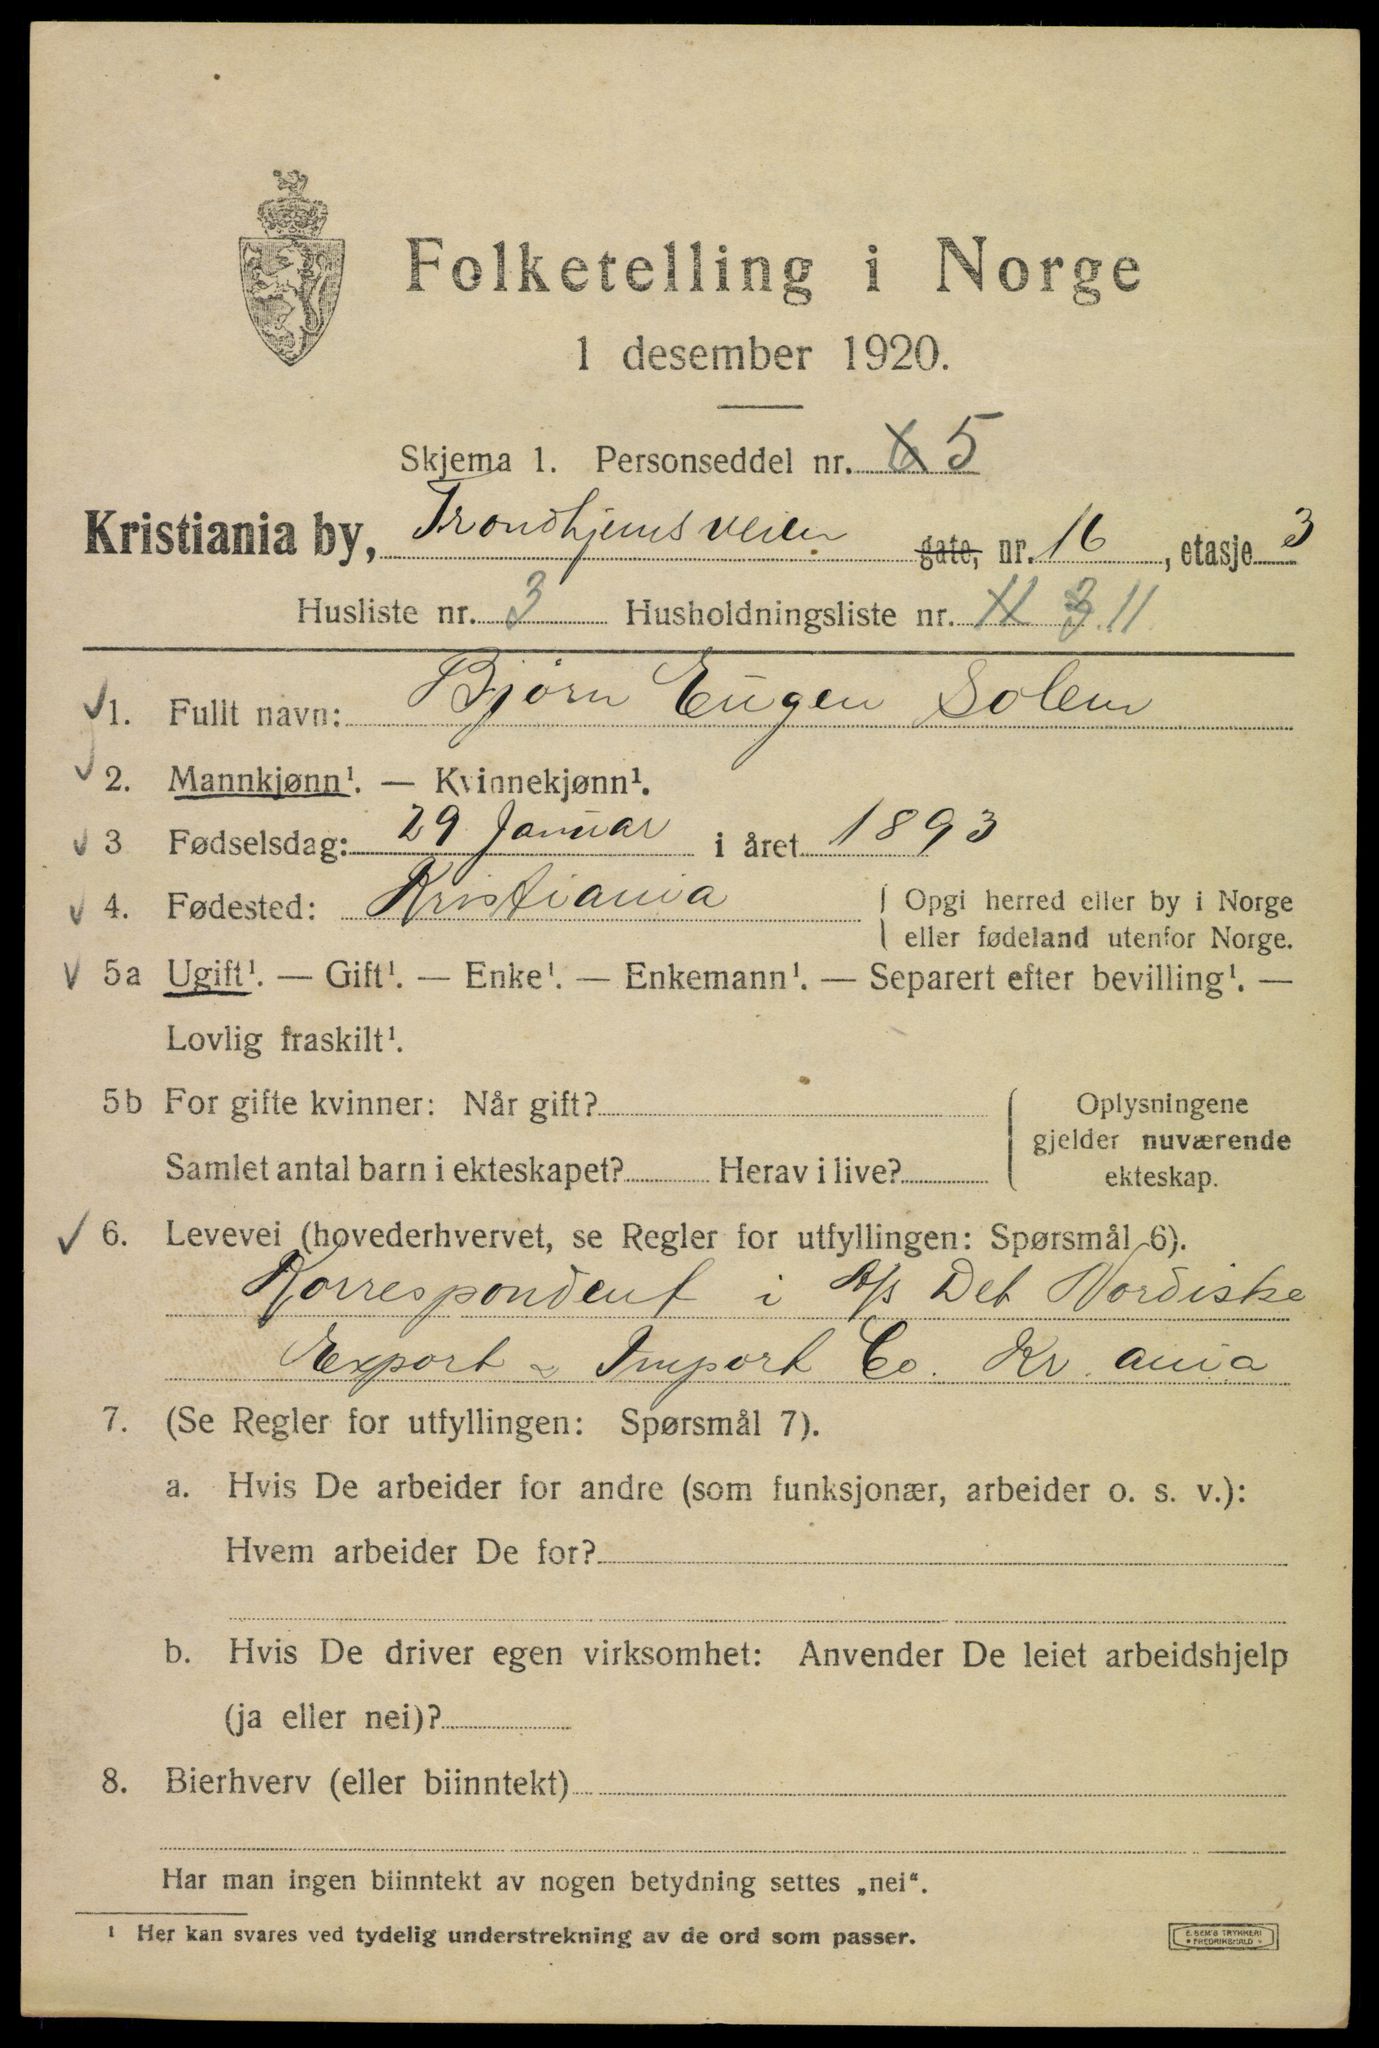 Folketelling i Norge
1 desember 1920.
Skjema 1. Personseddel nr. 6 5
Kristiania by, Trondhjemsveien gate, nr. 16, etasje 3
Husliste nr. 3 Husholdningsliste nr. 11 3 11
1. Fullt navn: Bjørn Eugen Solem
2. Mannkjønn¹. — Kvinnekjønn¹.
3 Fødselsdag: 29 Januar i året 1893
4. Fødested: Kristiania Opgi herred eller by i Norge
eller fødeland utenfor Norge.
5a Ugift¹. — Gift¹. — Enke¹. — Enkemann¹. — Separert efter bevilling¹. —
Lovlig fraskilt¹.
5b For gifte kvinner: Når gift? Oplysningene
gjelder nuværende
Samlet antal barn i ekteskapet? Herav i live? ekteskap.
6. Levevei (hovederhvervet, se Regler for utfyllingen: Spørsmål 6).
Korrespondent i A/s Det Nordiske
Export & Import Co. Kr.ania
7. (Se Regler for utfyllingen: Spørsmål 7).
a. Hvis De arbeider for andre (som funksjonær, arbeider o. s. v.):
Hvem arbeider De for?
b. Hvis De driver egen virksomhet: Anvender De leiet arbeidshjelp
(ja eller nei)?
8. Bierhverv (eller biinntekt)
Har man ingen biinntekt av nogen betydning settes „nei“.
¹ Her kan svares ved tydelig understrekning av de ord som passer.
E. SEM'S TRYKKERI
FREDRIKSHALD